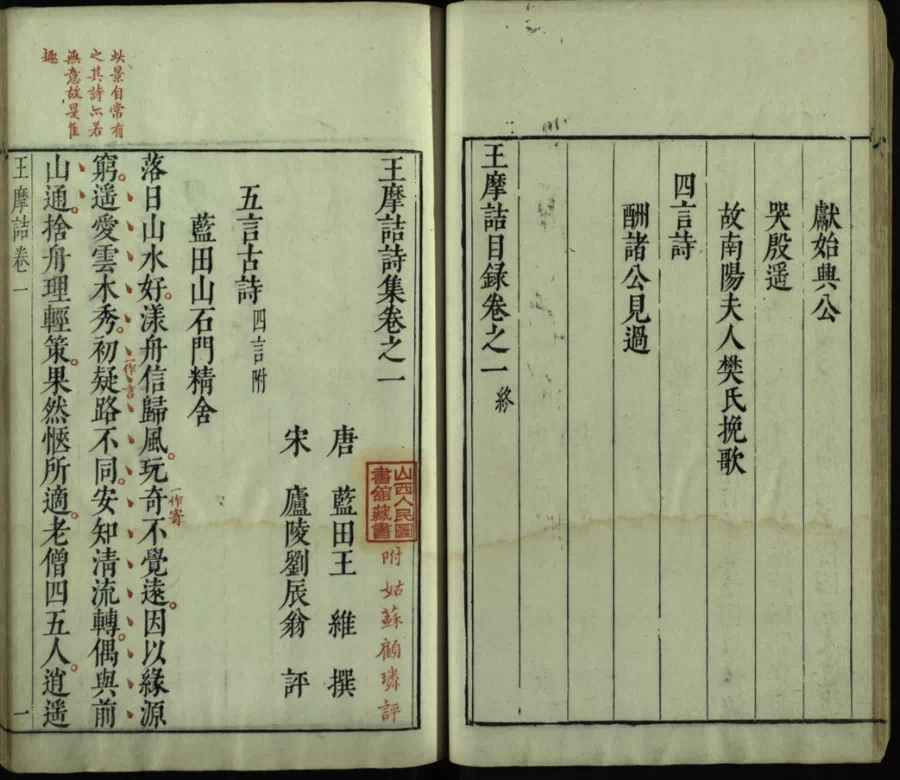 獻始興公
哭殷遥
故南陽夫人樊氏挽歌
四言詩
酬諸公見過
王摩詰目録卷之一 終
王摩詰詩集卷之一
附姑蘇顧璘評
山西人民圖
書舘藏書
唐 藍田王維 撰
宋 廬陵劉辰翁 評
五言古詩 四言附
藍田山石門精舍
落日山水好漾舟信歸風玩奇不覺遠因以緣源
一作寄
窮遥愛雲木秀初疑路不同安知清流轉偶與前
一作言
山通捨舟理輕策果然愜所適老僧四五人逍遥
此景自常有
之其詩亦若
無意故是佳
趣
王摩詰卷一
一